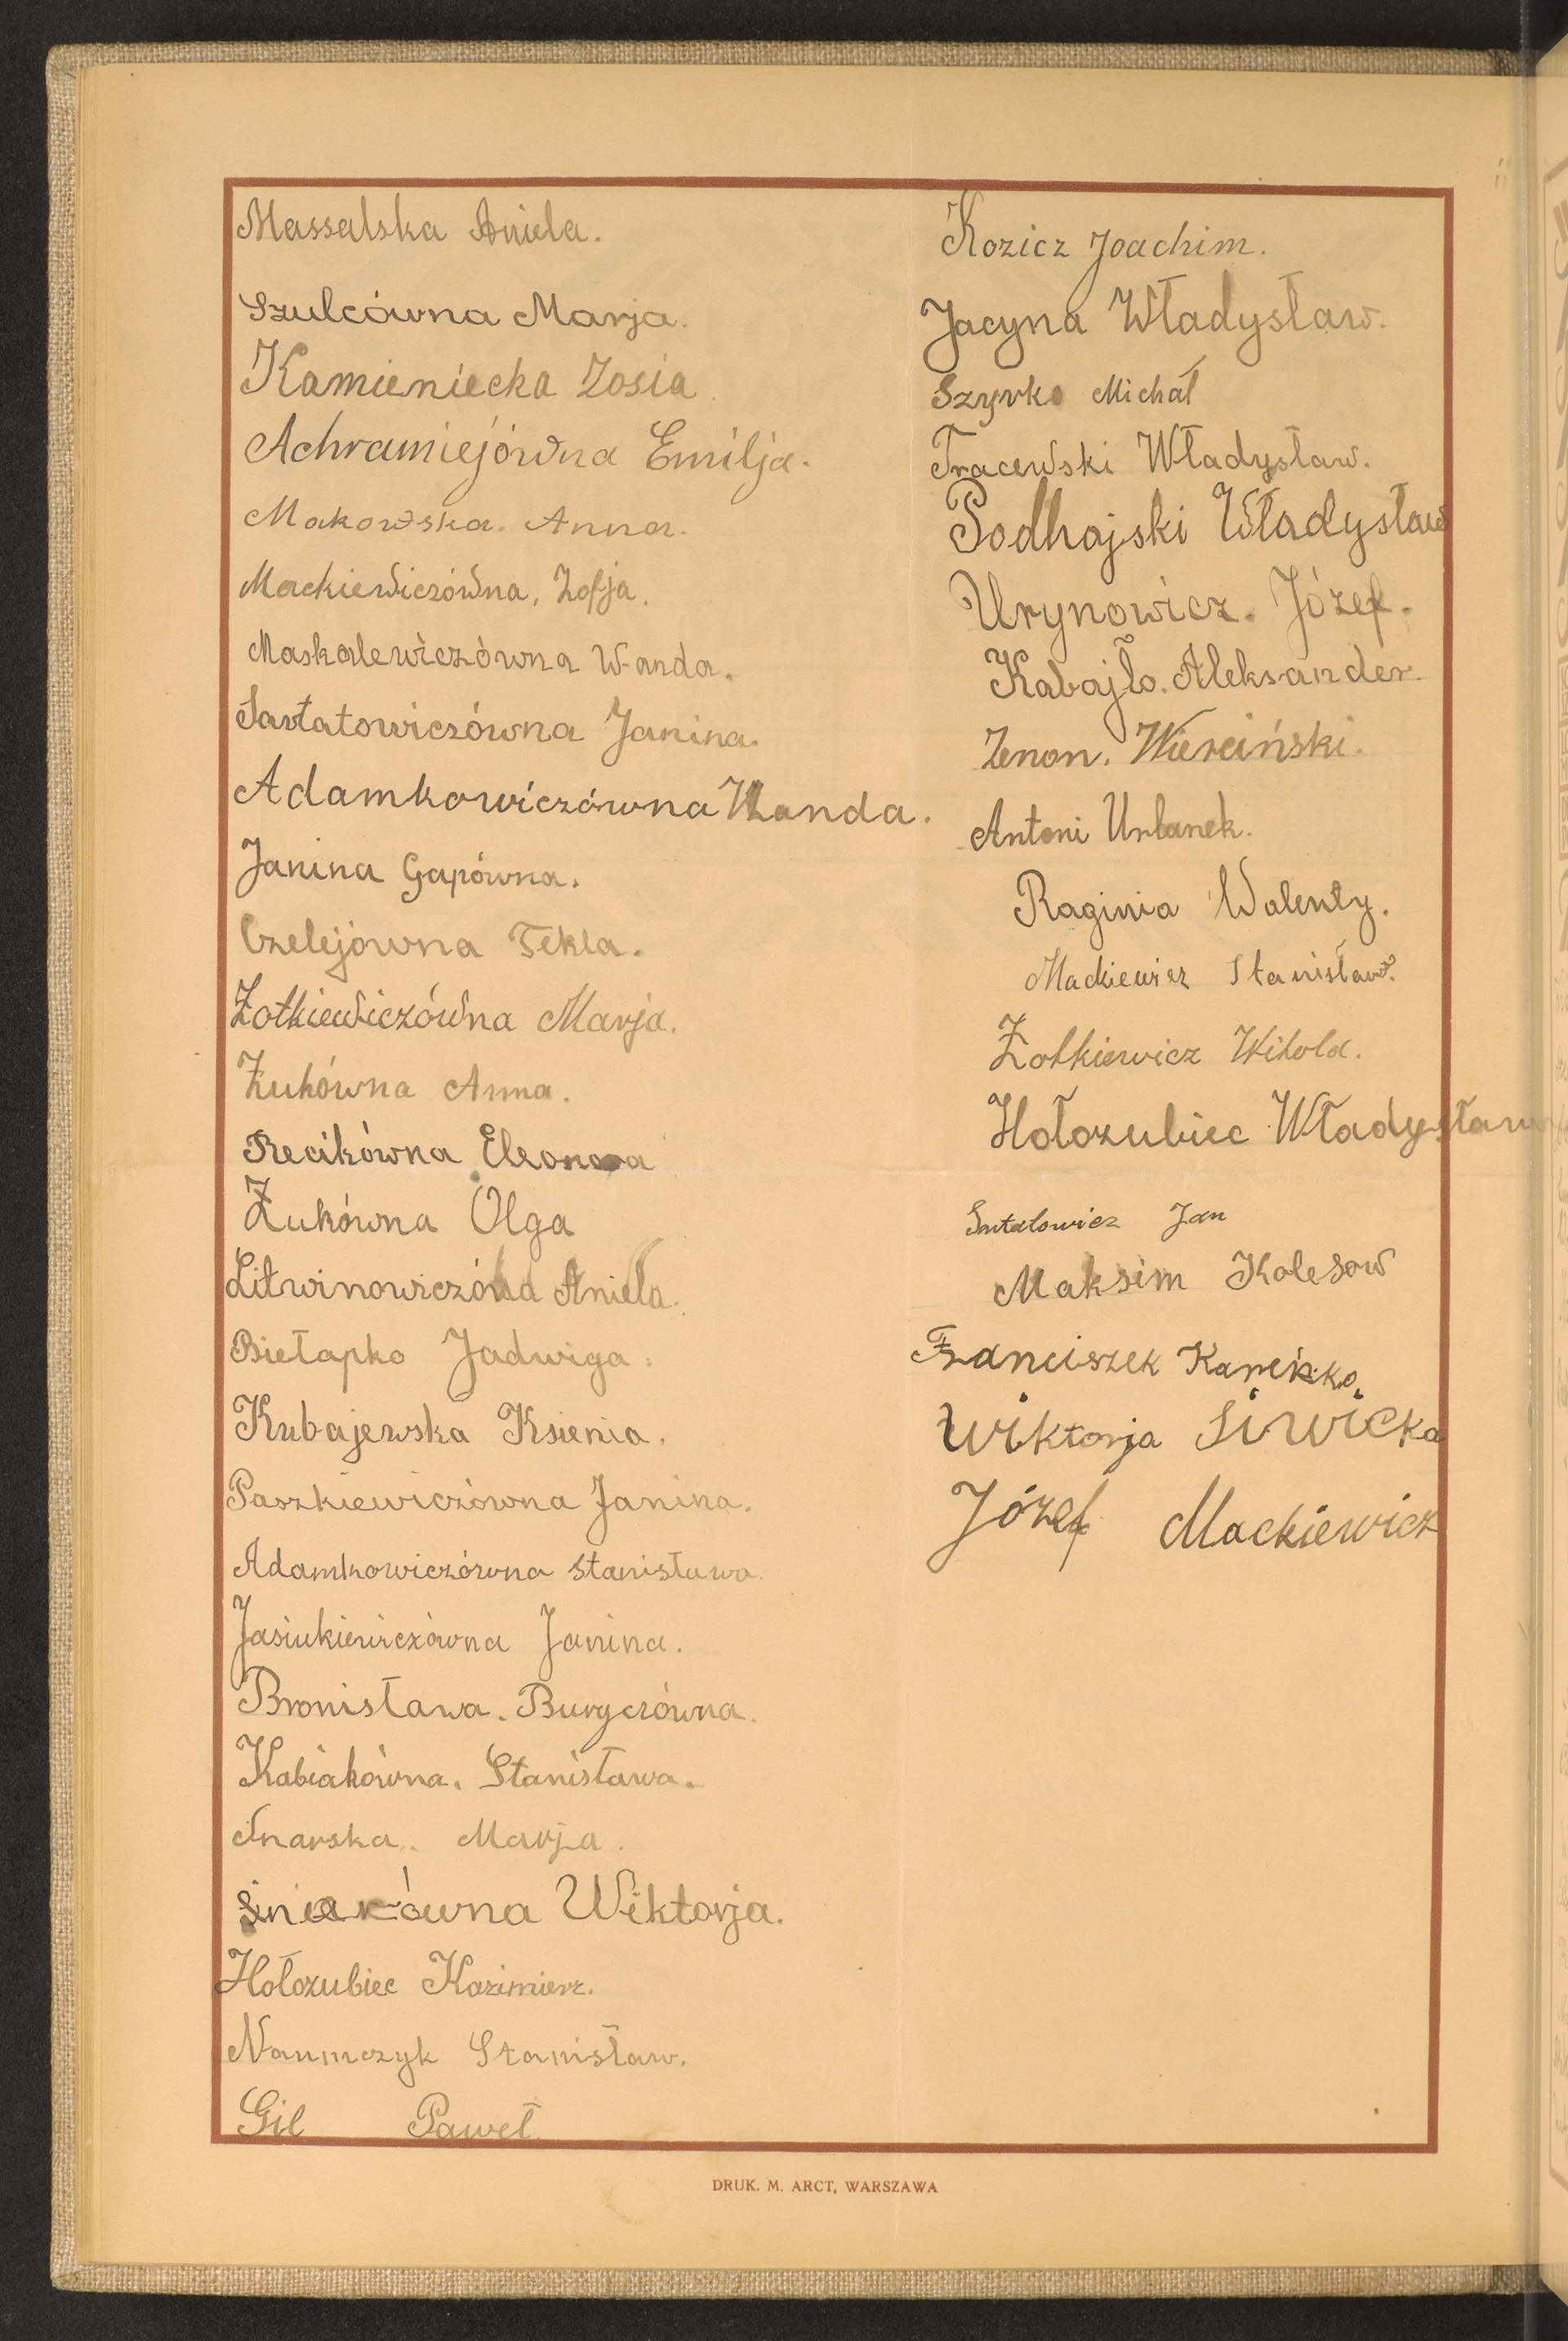 Massalska Aniela.
Szulcówna Marja.
Kamieniecka Zosia.
Achramiejówna Emilja.
Makowska. Anna.
Mackiewiczówna, Zofja.
Maskalewiczówna Wanda.
Santatowiczówna Janina.
Adamkowiczówna Wanda.
Janina Gapówna.
Czelejówna Tekla.
Żotkiewiczówna Marja.
Żukówna Anna.
Recikówna Eleonora
Żukówna Olga
Litwinowiczówna Aniela.
Biełapko Jadwiga.
Kubajewska Ksienia.
Paszkiewiczówna Janina.
Adamkowiczówna Stanisława.
Jasiukiewiczówna Janina.
Bronisława. Buryczówna.
Kabiakówna. Stanisława.
Snarska. Marja.
Wiktorja.
Hołozubiec Kazimierz.
Naumczyk Stanisław.
Gil Paweł
Kozicz Joachim.
Jacyna Władysław.
Szyrko Michał
Tracewski Władysław.
Podhajski Władysław
Urynowicz. Józef.
Kabajło. Aleksander.
Zenon. Wierciński.
Antoni Urbanek.
Raginia Walenty.
Mackiewicz Stanisław.
Żotkiewicz Witold.
Hołozubiec Władysław
Jan
Maksim Kolesow
Franciszek
Wiktorja Siwicka
Józef Mackiewicz
DRUK. M. ARCT, WARSZAWA